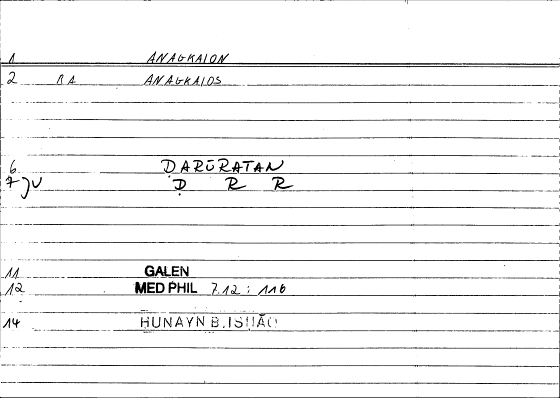 1 ANAGKAION
2 BA ANAGKAIOS
6 ḌARŪRATAN
7 JU Ḍ R R
11 GALEN
12 MED PHIL 7.12 : 116
14 HUNAYN B. ISḤĀQ